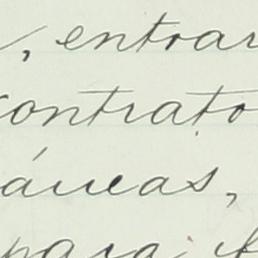 , entrar
contrato
áneas,
para